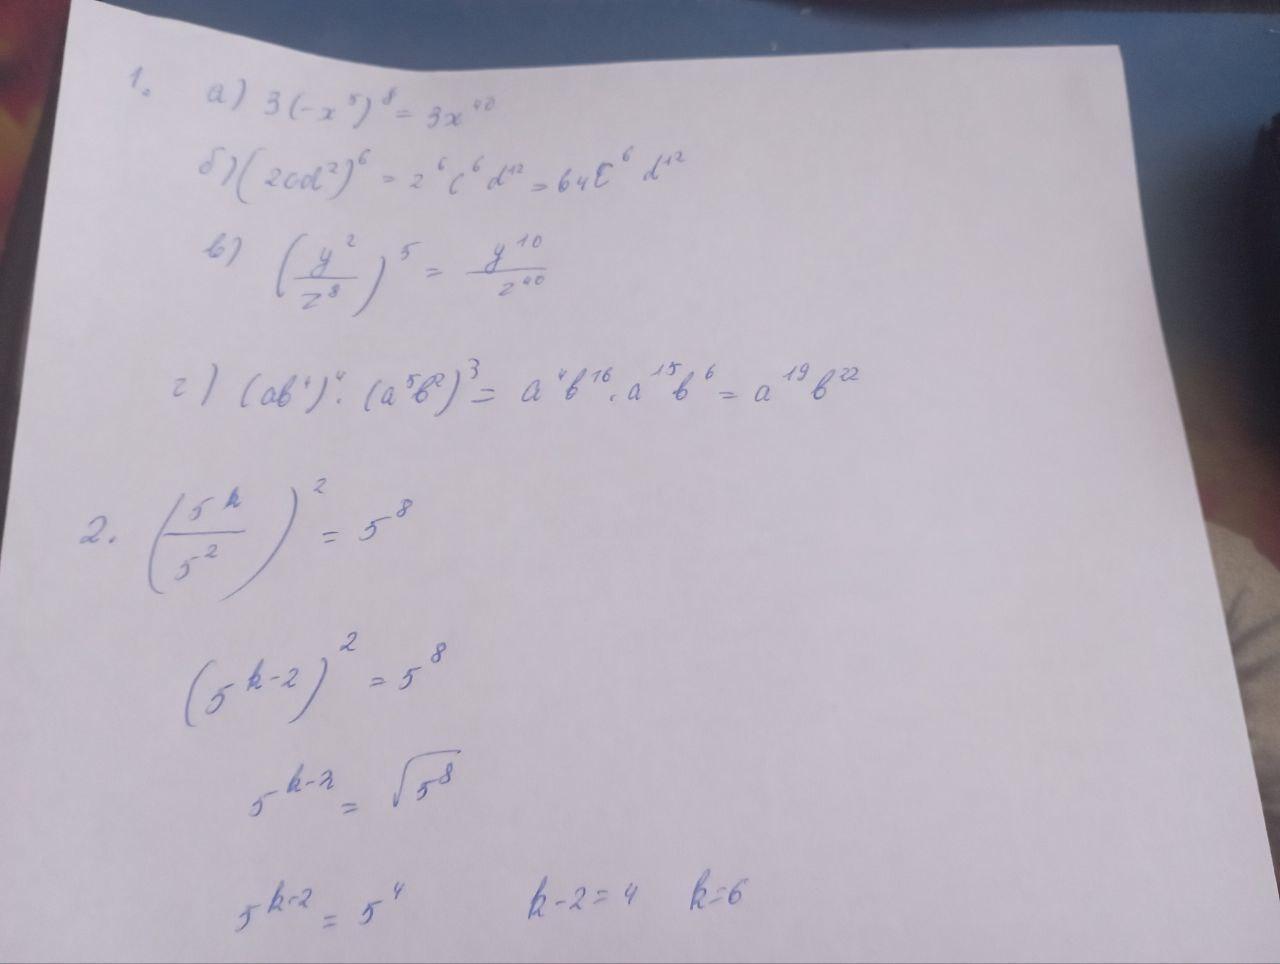 1. а) 3(-x⁵)⁸ = 3x⁴⁰
б) (2cd²)⁶ = 2⁶c⁶d¹² = 64c⁶d¹²
в) (y²/z⁸)⁵ = y¹⁰/z⁴⁰
г) (ab⁴)⁴ · (a⁵b²)³ = a⁴b¹⁶ · a¹⁵b⁶ = a¹⁹b²²
2. (5ᵏ/5²)² = 5⁸
(5ᵏ⁻²)² = 5⁸
5ᵏ⁻² = √5⁸
5ᵏ⁻² = 5⁴ k-2=4 k=6